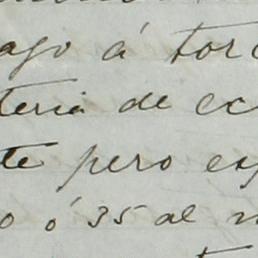 ago á tor
teria de ec
te pero es
o ó 35 al